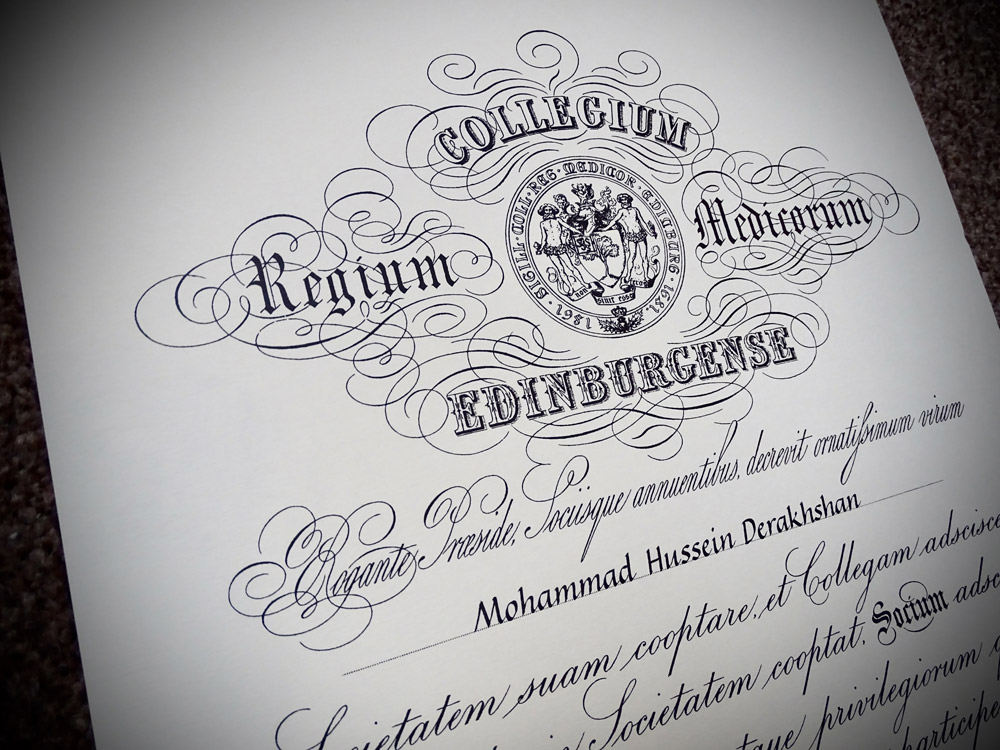 COLLEGIUM
Regium
SIGILL·COLL·REG·MEDICOR·EDINBURG·1681·
1861
Medicorum
EDINBURGENSE
Rogante Præside, Sociisque annuentibus, decrevit ornatiſsimum virum
Mohammad Hussein Derakhshan
Societatem suam cooptare, et Collegam adscisce
Societatem cooptat, Socium adsc
privilegiorum
participe